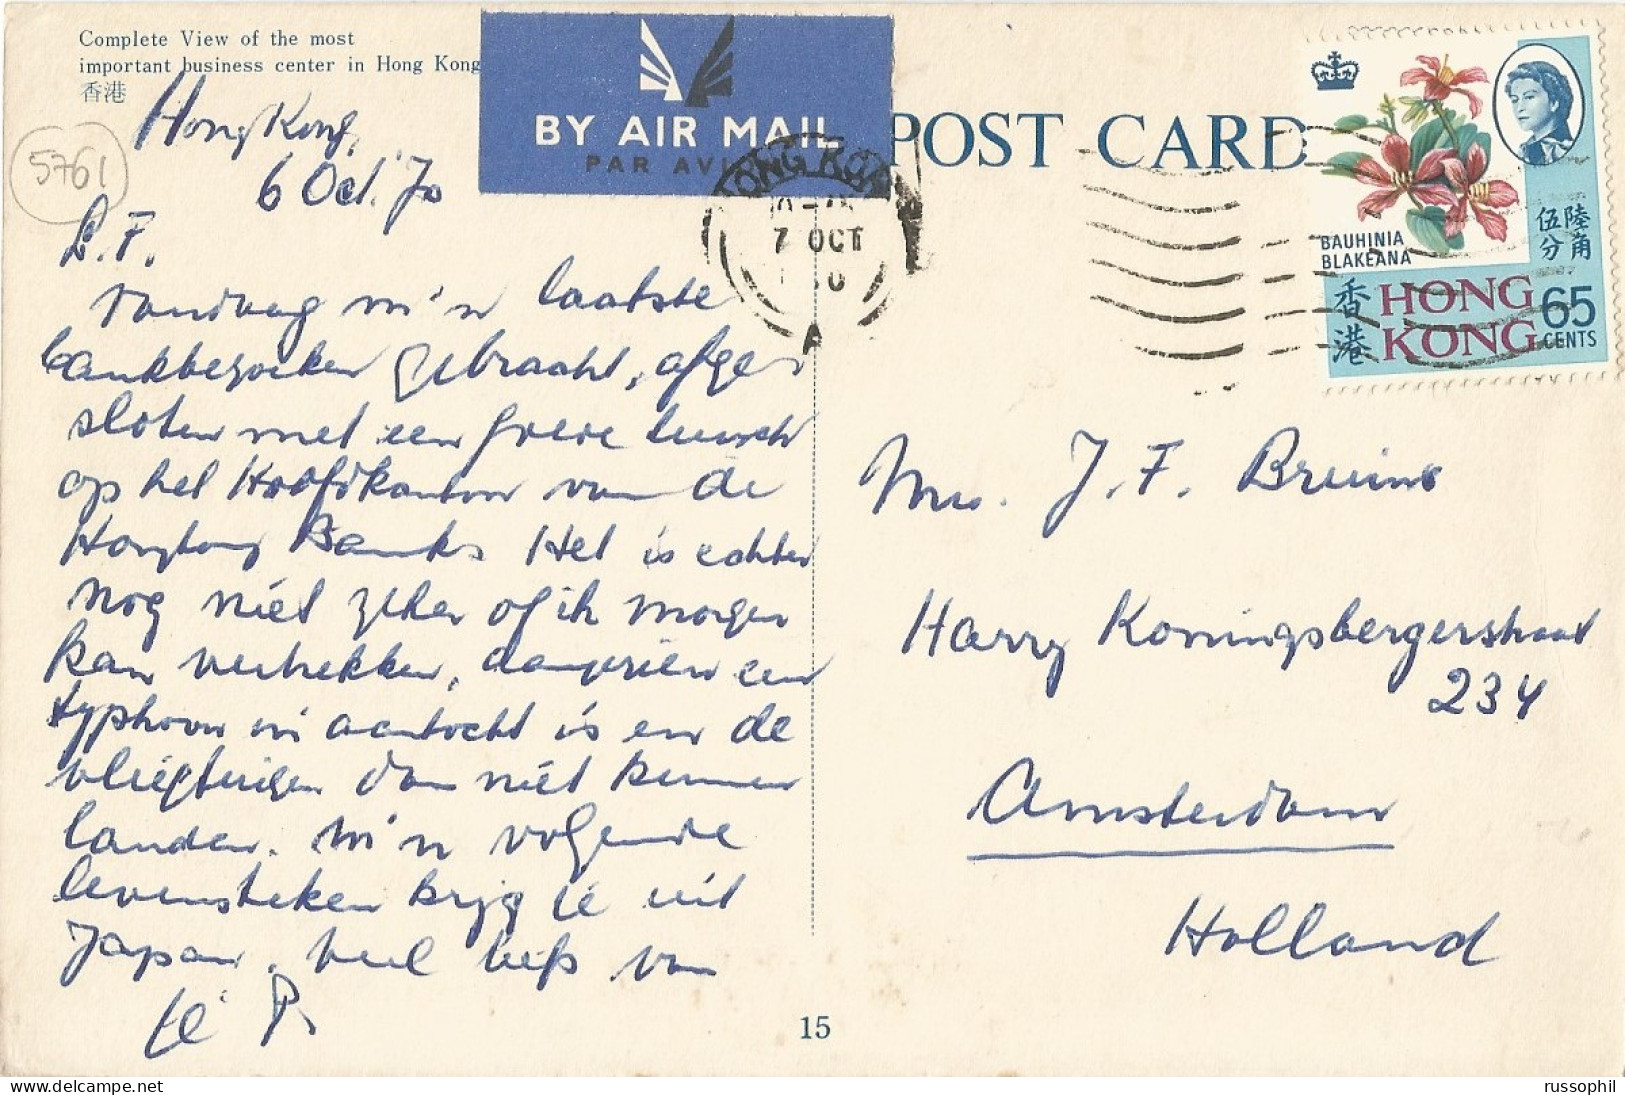 Complete View of the most
important business center in Hong Kong
香港
BY AIR MAIL
PAR AVI
POST CARD
HONG KONG
7 OCT
BAUHINIA
BLAKEANA
伍分 陸角
香港
HONG
KONG
65
CENTS
5761
Hong Kong,
6 Oct. '70
L. F.
Vandaag m'n laatste
bankbezoeken gebracht, afge-
sloten met een groze lunch
op het Hoofdkantoor van de
Hongkong Bank. Het is echter
nog niet zeker of ik morgen
kan vertrekken, aangezien een
typhoon in aantocht is en de
vliegtuigen dan niet kunnen
landen. M'n volgende
levensteken krijg je uit
Japan. Veel liefs van
je P.
Mrs. J. F. Bruins
Harry Koningsbergerstraat
234
Amsterdam
Holland
15
russophil